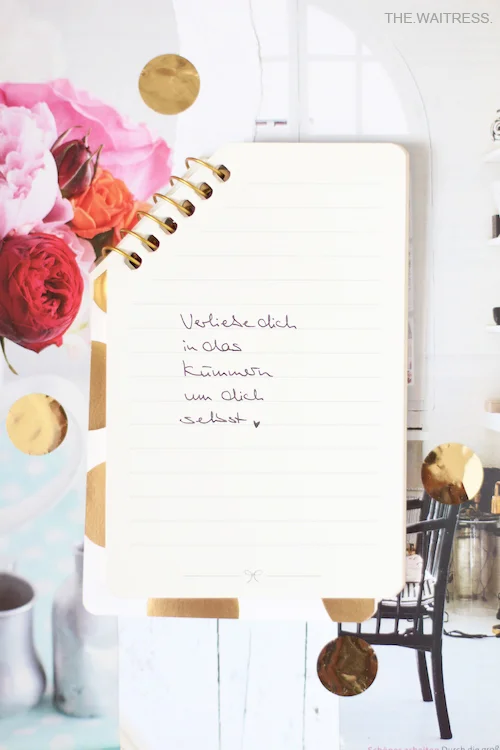 THE.WAITRESS.
Verliebe dich
in das
Kümmern
um dich
selbst ♥